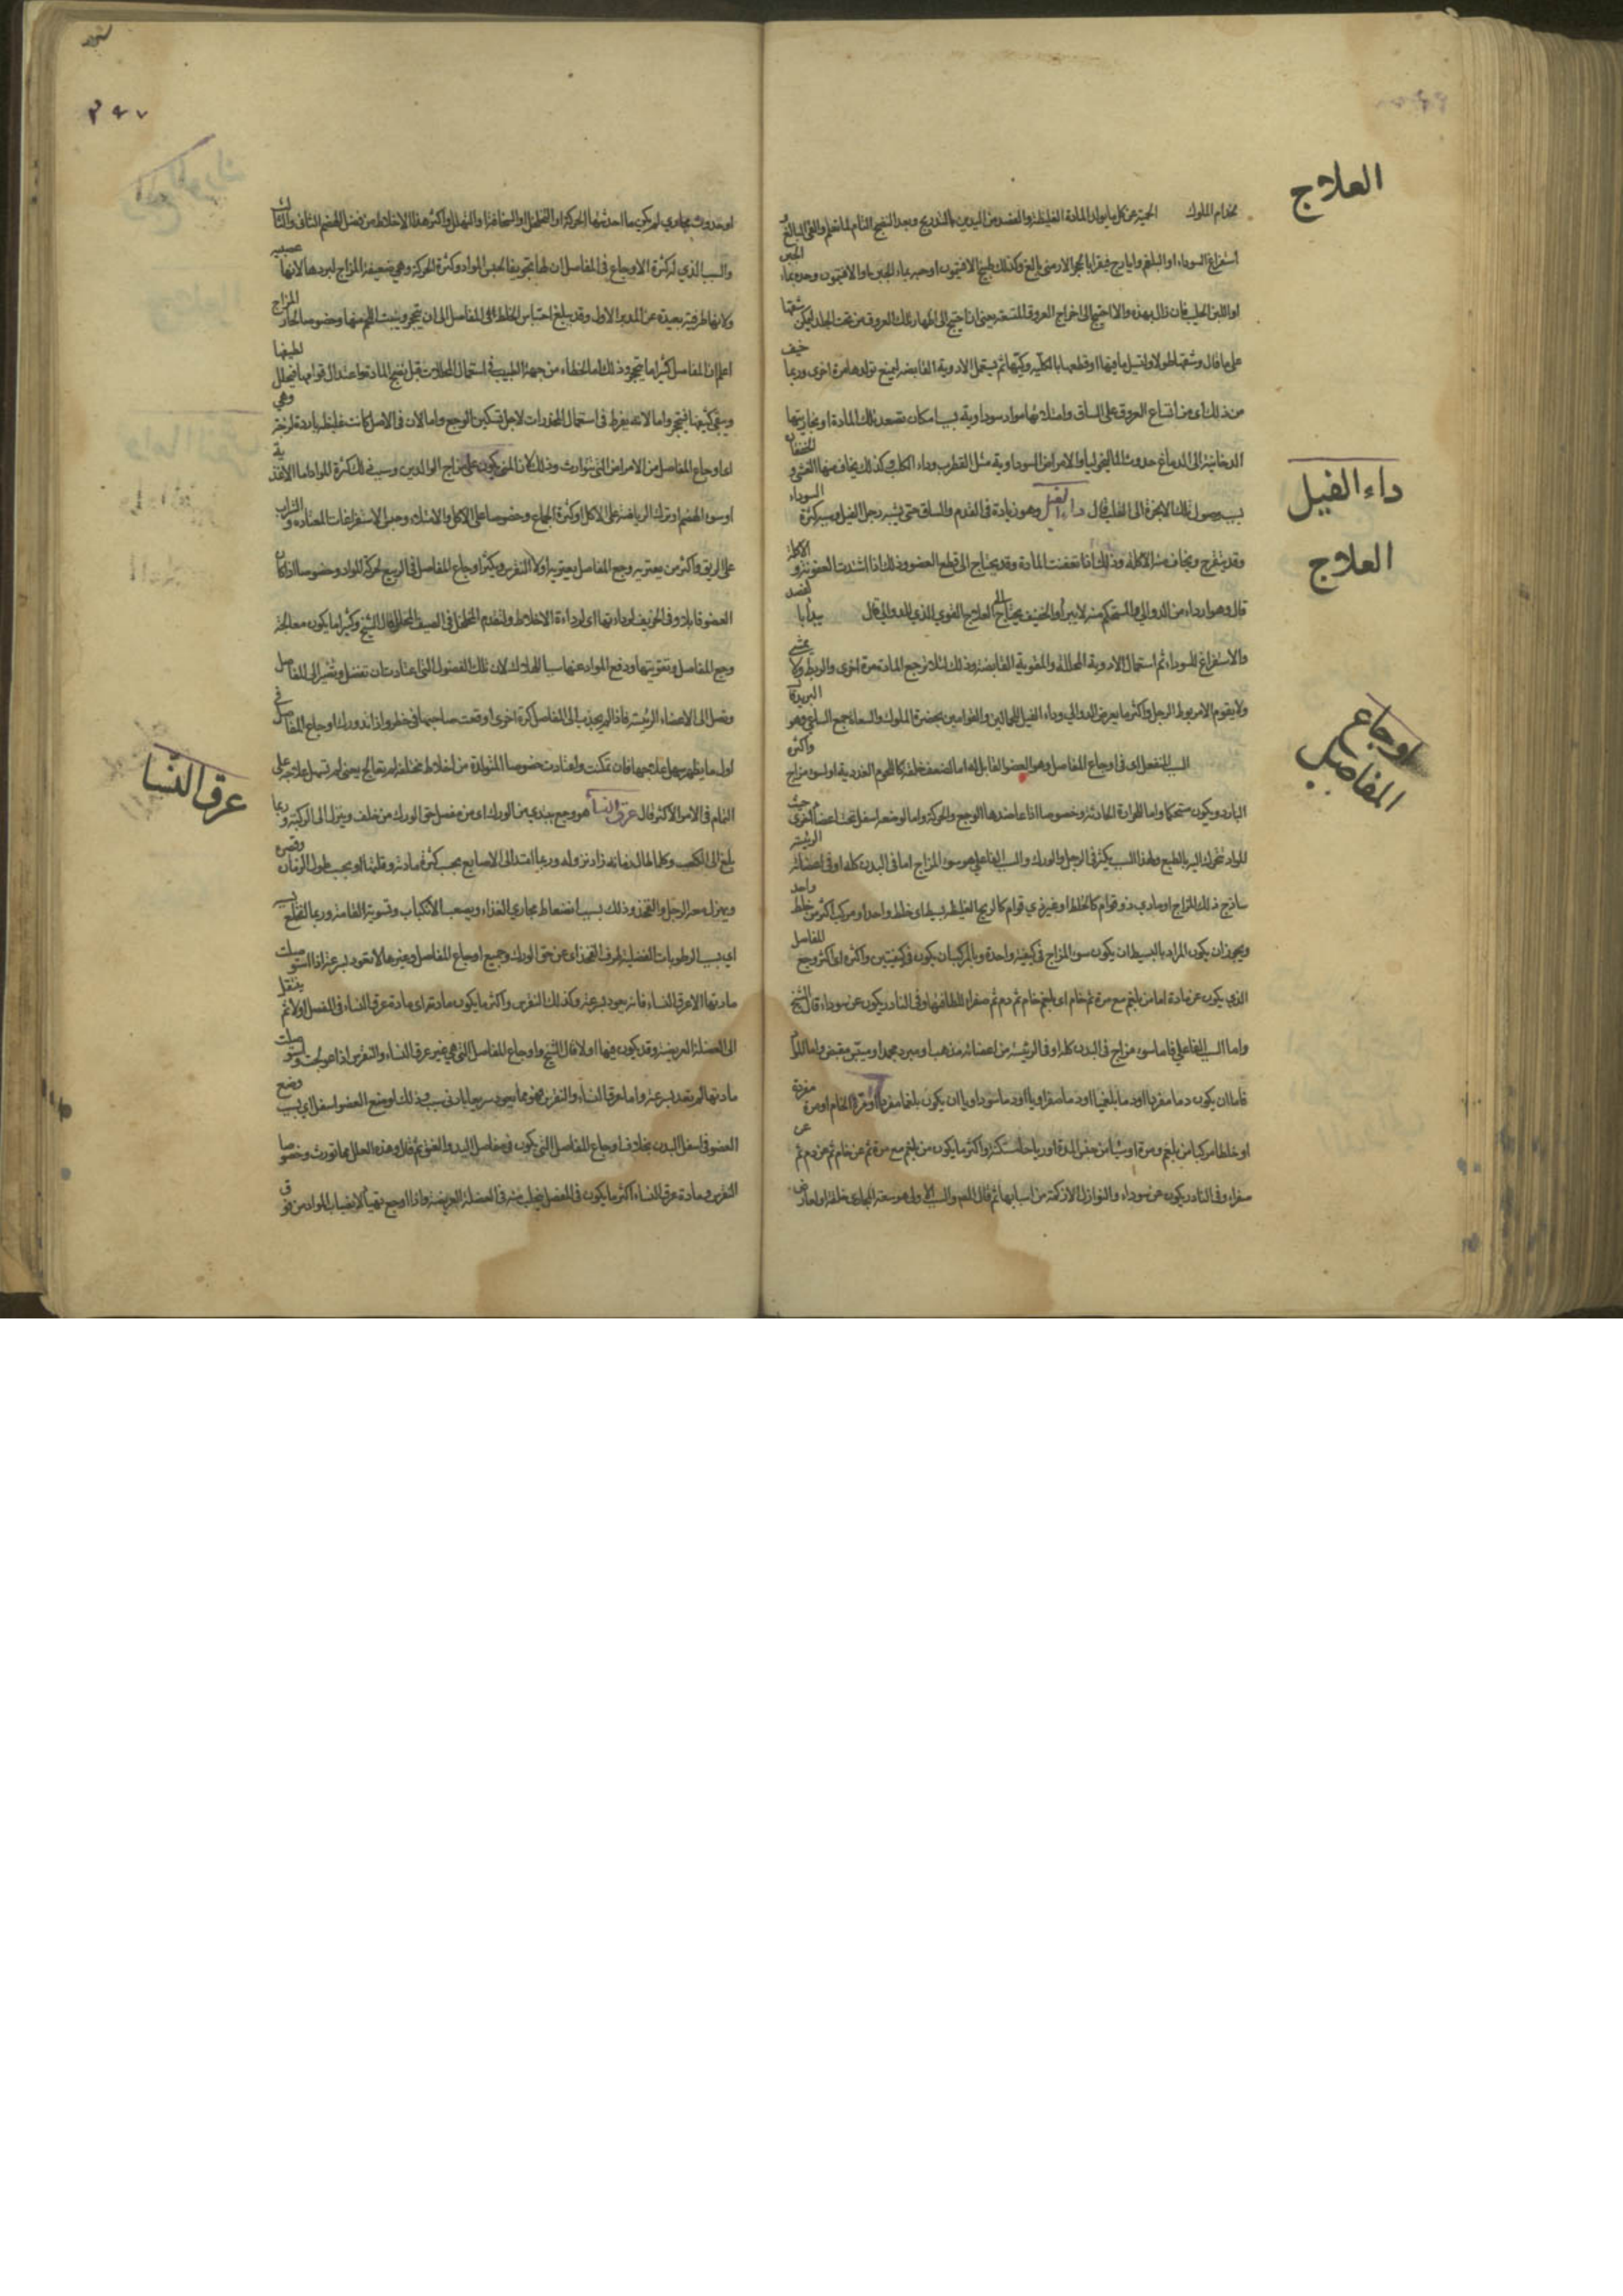 العلاج
خدام الملوك الحمية عن كل ما يولد المادة الغليظة والفصد من اليدين بالتدريج وبعد النضج التام لما تعلم والقئ البالغ و
استفراغ السوداء او البلغم وايارج فيقرا بالحجر الارمنى بالغ وكذلك طبيخ الافتيمون او حبه بماء الجبن والافتيمون وحده بماء الجبن
او اللبن الحليب فان زال بهذه والا احتيج الى اخراج العروق يعنى اذا احتيج الى اظهار تلك العروق من تحت الجلد ليكن شقها
على ما قال وشقها طولا وتسيل ما فيها او قطعها بالكلية وكيها ثم يستعمل الادوية القابضة ليمنع تولدها مرة اخرى وربما خيف
من ذلك اى من اتساع العروق على الساق وامتلائها مواد سوداوية بسبب امكان تصعد تلك المادة او بخاريتها
الدخانية الى الدماغ حدوث الماليخوليا والامراض السوداوية مثل القطرب وداء الكلب وكذلك يخاف منها الغشى و الخفقان
بسبب وصول تلك الابخرة الى القلب قال داء الفيل وهو زيادة فى القدم والساق حتى يشبه رجل الفيل وسببه كثرة السوداء
داء الفيل
وقد يتقرح ويخاف منه الاكلة وذلك اذا تعفنت المادة وقد يحتاج الى قطع العضو وذلك اذا اشتدت العفونة و الاكلة
العلاج
قال وهو اردء من الدوالى والمستحكم منه لا يبرأ والخفيف يحتاج الى العلاج القوى الذى للدوالى قال يبدأ بالفصد
والاستفراغ للسوداء ثم استعمال الادوية المحللة والمقوية القابضة وذلك لئلا ترجع المادة مرة اخرى والربط ولا يمشى
ولا يقوم الا مربوط الرجل واكثر ما يعرض الدوالى وداء الفيل للحمالين والقوامين بحضرة الملوك والسعاة جمع الساعى وهو البريد قال
اوجاع المفاصل
السبب المنفعل فى اوجاع المفاصل وهو العضو القابل لها اما لضعف خلقه كاللحوم الغددية او لسوء مزاج واكثره
البارد ويكون مستحكما واما للحرارة الجاذبة وخصوصا اذا عاضدها الوجع والحركة واما لوضعه اسفل تحت اعضاء اخرى من حيث
المواد تتحرك اليه بالطبع ولهذا السبب يكثر فى الرجل والورك والسبب الفاعلى هو سوء المزاج اما فى البدن كله او فى اعضائه الرئيسة
ساذج ذلك المزاج او مادى ذو قوام كالخلط او غير ذى قوام كالريح الغليظة بسيط اى خلط واحد او مركب اكثر من خلط واحد
ويجوز ان يكون المراد بالبسيط ان يكون سوء المزاج فى كيفية واحدة وبالمركب ان يكون فى كيفيتين واكثره اى اكثر وجع المفاصل
الذى يكون عن مادة اما من بلغم مع مرة ثم خام اى بلغم خام ثم دم ثم صفراء للطافتها وفى النادر يكون عن سوداء قال الشيخ
واما السبب الفاعلى فاما سوء مزاج فى البدن كله او فى الرئيسة من اعضائه مذهب او مبرد مجمد او ميبس مقبض واما المادى
فاما ان يكون دما مفردا او دما بلغميا او دما صفراويا او دما سوداويا وان يكون بلغما مفردا الخام او مرة مفردة
او خلطا مركبا من بلغم ومرة او شيئا من جنس المدة او رياحا مستكنة واكثر ما يكون من بلغم مع مرة ثم عن خام ثم عن دم ثم عن
صفراء وفى النادر يكون عن سوداء والنوازل الازكمة من اسبابها ثم قال المعم والسبب الآلى وهو سعة المجارى خلقة او لعارض
او حدوث مجارى لم يكن مما احدثها الحركة او التخلخل او التهلل واكثر هذا الاخلاط من فضل الهضم الثانى والثالث
والسبب الذى له كثرة الاوجاع فى المفاصل ان لها تجويفا لحبس المواد وكثرة الحركة وهى ضعيفة المزاج لبردها لانها عصبية
ولانها طرفية بعيدة عن المدبر الاول وقد يبلغ احتباس الخلط فى المفاصل الى ان يتحجر وينبت اللحم منها وخصوصا الحار المزاج
اعلم ان المفاصل كثيرا ما يتحجر وذلك اما لخطاء من جهة الطبيب فى استعمال المحللات قبل نضج المادة واعتدال قوامها فيتحلل لطيفها
ويبقى كثيفها فيتحجر واما لانه يفرط فى استعمال المخدرات لاجل تسكين الوجع واما لان فى الاصل كانت غليظة باردة لزجة وهى
اى اوجاع المفاصل من الامراض التى تتوارث وذلك لان المنى يكون على مزاج الوالدين وسبب ذلك كثرة المواد اما الاغذية
او سوء الهضم او ترك الرياضة على الاكل او كثرة الجماع وخصوصا على الاكل والامتلاء وحبس الاستفراغات المعتادة و الشراب
على الريق واكثر من يعتريه وجع المفاصل يعتريه اولا النقرس ويكثر اوجاع المفاصل فى الربيع لحركة المواد وخصوصا اذا كان
العضو قابلا وفى الخريف لرداءتها اى لرداءة الاخلاط ولتقدم التخلخل فى الصيف المحلل قال الشيخ وكثيرا ما يكون معالجة
وجع المفاصل وتقويتها ودفع المواد عنها سببا للهلاك لان تلك الفضول التى اعتادت ان تفضل وتصير الى المفاصل
وتصل الى الاعضاء الرئيسة فاذا لم يجذب الى المفاصل كرة اخرى اوقعت صاحبها فى خطر واذا تدورك اوجاع المفاصل فى
اول ما يظهر سهل علاجها فان تمكنت واعتادت خصوصا المتولدة من اخلاط مختلفة لم تعالج يعنى لم تسهل علاجه على
عرق النسا
التمام فى الامر الاكثر قال عرق النسا هو وجع يبتدئ من الورك اى من مفصل حق الورك من خلف وينزل الى الركبة وربما
بلغ الى الكعب وكلما طال زمانه زاد نزوله وربما امتد الى الاصابع بحسب كثرة مادته وقلتها او بحسب طول الزمان وقصره
ويهزل معه الرجل والفخذ وذلك بسبب انضغاط مجارى الغذاء ويصعب الانكباب وتسوية القامة وربما انخلع
اى بسبب الرطوبات الفضلية طرف الفخذ اى عن حق الورك وجميع اوجاع المفاصل وغيرها لا تعود بسرعة اذا استؤصلت
مادتها الا عرق النساء فانه يعود بسرعة وكذلك النقرس واكثر ما يكون مادته اى مادة عرق النساء فى المفصل اولا ثم ينتقل
الى العضلة العريضة وقد يكون فيها اولا قال الشيخ واوجاع المفاصل التى هى غير عرق النساء والنقرس اذا عولجت واستؤصلت
مادتها لم تعد بسرعة واما عرق النساء والنقرس فهو مما يعود سريعا بادنى سبب وذلك لوضع العضو اسفل اى بسبب وضع
العضو فى اسفل البدن بخلاف اوجاع المفاصل التى يكون فى مفاصل اليد والعنق ثم قال وهذه العلل مما تورث وخصوصا
النقرس ومادة عرق النساء اكثر ما يكون فى المفصل فيتحلب منه فى العضلة العريضة واذا اوجع تهيأ لانصباب المواد من فوق